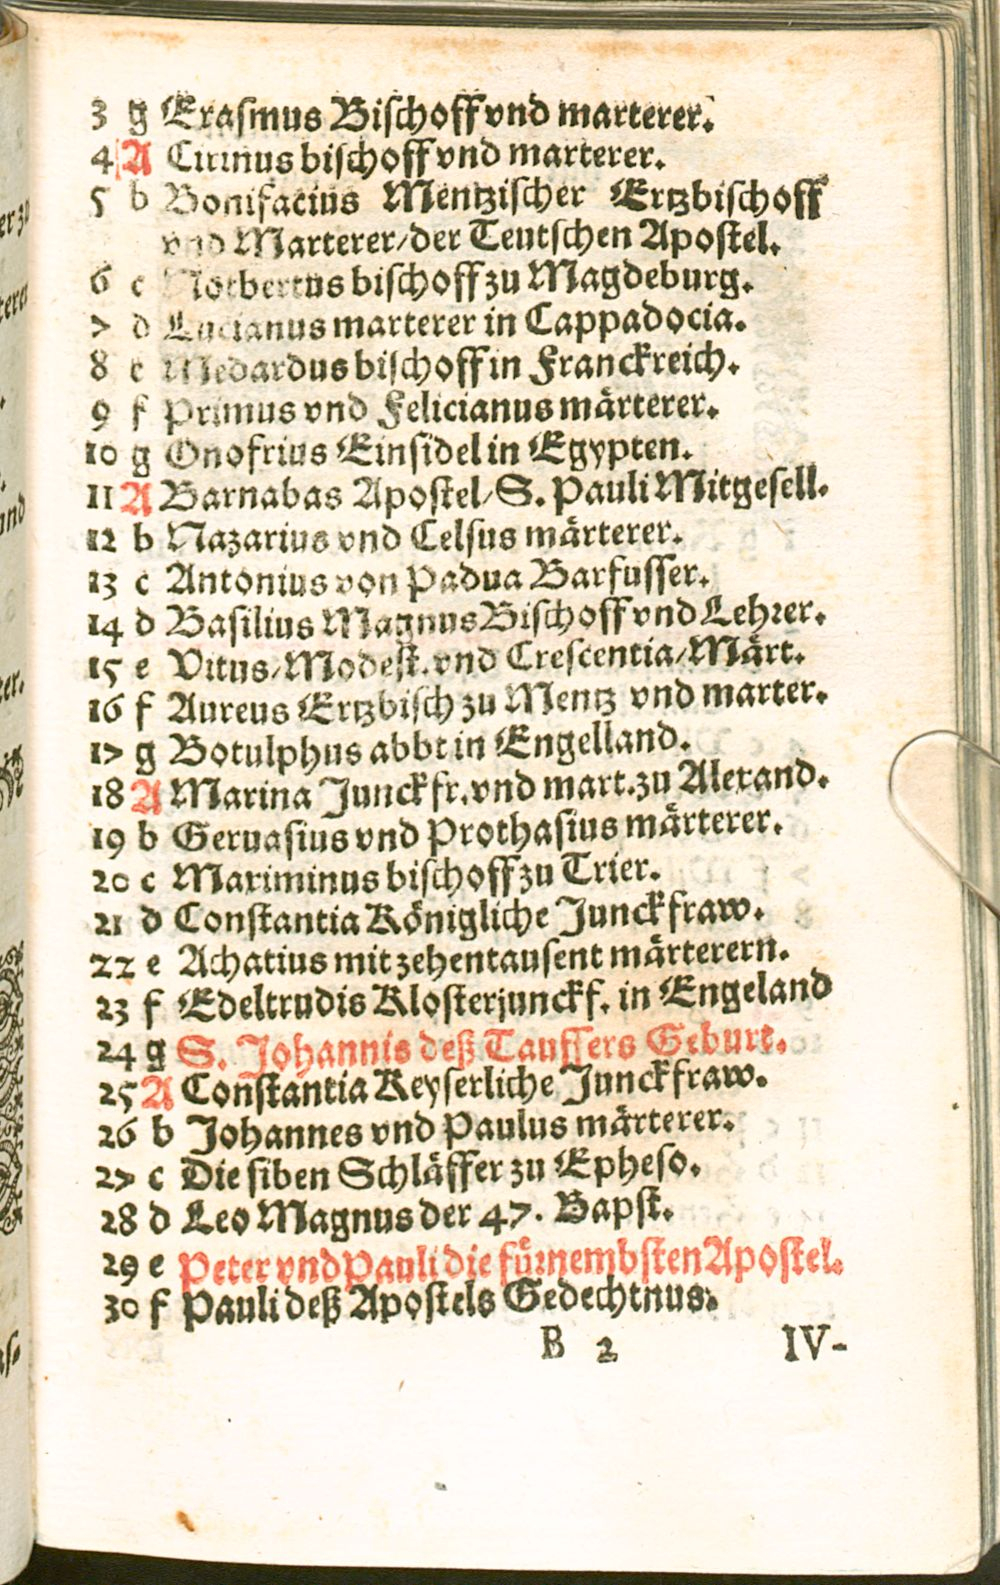 3 g Erasmus Bischoff vnd marterer.
4 A Cirinus bischoff vnd marterer.
5 b Bonifacius Mentzischer Ertzbischoff
vnd Marterer/der Teutschen Apostel.
6 c Norbertus bischoff zu Magdeburg.
7 d Lucianus marterer in Cappadocia.
8 e Medardus bischoff in Franckreich.
9 f Primus vnd Felicianus märterer.
10 g Onofrius Einsidel in Egypten.
11 A Barnabas Apostel/S. Pauli Mitgesell.
12 b Nazarius vnd Celsus märterer.
13 c Antonius von Padua Barfusser.
14 d Basilius Magnus Bischoff vnd Lehrer.
15 e Vitus/Modest. vnd Crescentia/Märt.
16 f Aureus Ertzbisch zu Mentz vnd marter.
17 g Botulphus abbt in Engelland.
18 A Marina Junckfr. vnd mart. zu Alexand.
19 b Geruasius vnd Prothasius märterer.
20 c Maximinus bischoff zu Trier.
21 d Constantia Königliche Junckfraw.
22 e Achatius mit zehentausent märterern.
23 f Edeltrudis Klosterjunckf. in Engeland
24 g S. Johannis deß Tauffers Geburt.
25 A Constantia Keyserliche Junckfraw.
26 b Johannes vnd Paulus märterer.
27 c Die siben Schläffer zu Epheso.
28 d Leo Magnus der 47. Bapst.
29 e Peter vnd Pauli die fürnembsten Apostel.
30 f Pauli deß Apostels Gedechtnus.
B 2 IV-